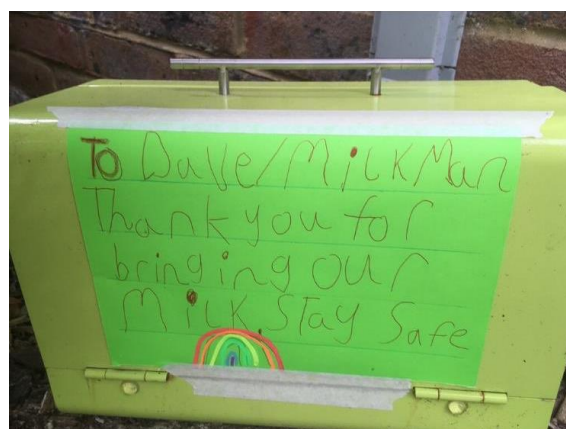 To Dave/MilkMan
Thank you for
bringing our
Milk. Stay Safe